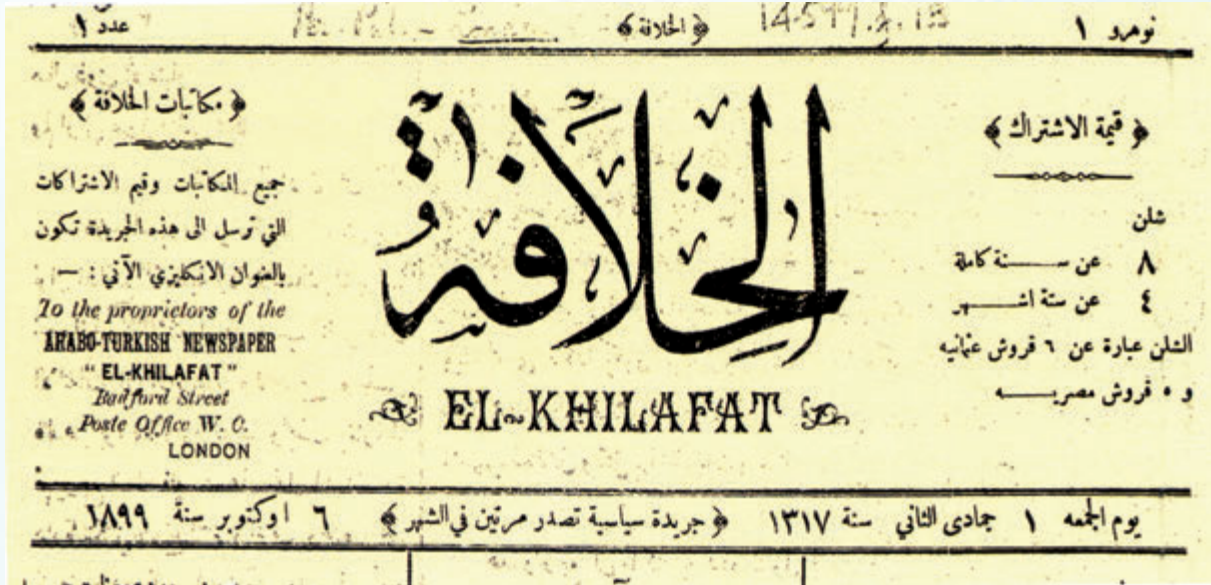 نومرو ١
﴿ الخلافة ﴾
14577.g.13
عدد ١
﴿ قيمة الاشتراك ﴾
شلن
٨ عن ســـنة كاملة
٤ عن ستة اشـــهر
الشلن عبارة عن ٦ قروش عثمانيه
و ٥ قروش مصريـــه
الخلافة
EL-KHILAFAT
﴿ مكاتبات الخلافة ﴾
جميع المكاتبات وقيم الاشتراكات
التي ترسل الى هذه الجريدة تكون
بالعنوان الانكليزي الآتي : —
To the proprietors of the
ARABO-TURKISH NEWSPAPER
" EL-KHILAFAT "
Bedford Street
Poste Office W. C.
LONDON
يوم الجمعه ١ جمادى الثاني سنة ١٣١٧
﴿ جريدة سياسية تصدر مرتين في الشهر ﴾
٦ اوكتوبر سنة ١٨٩٩